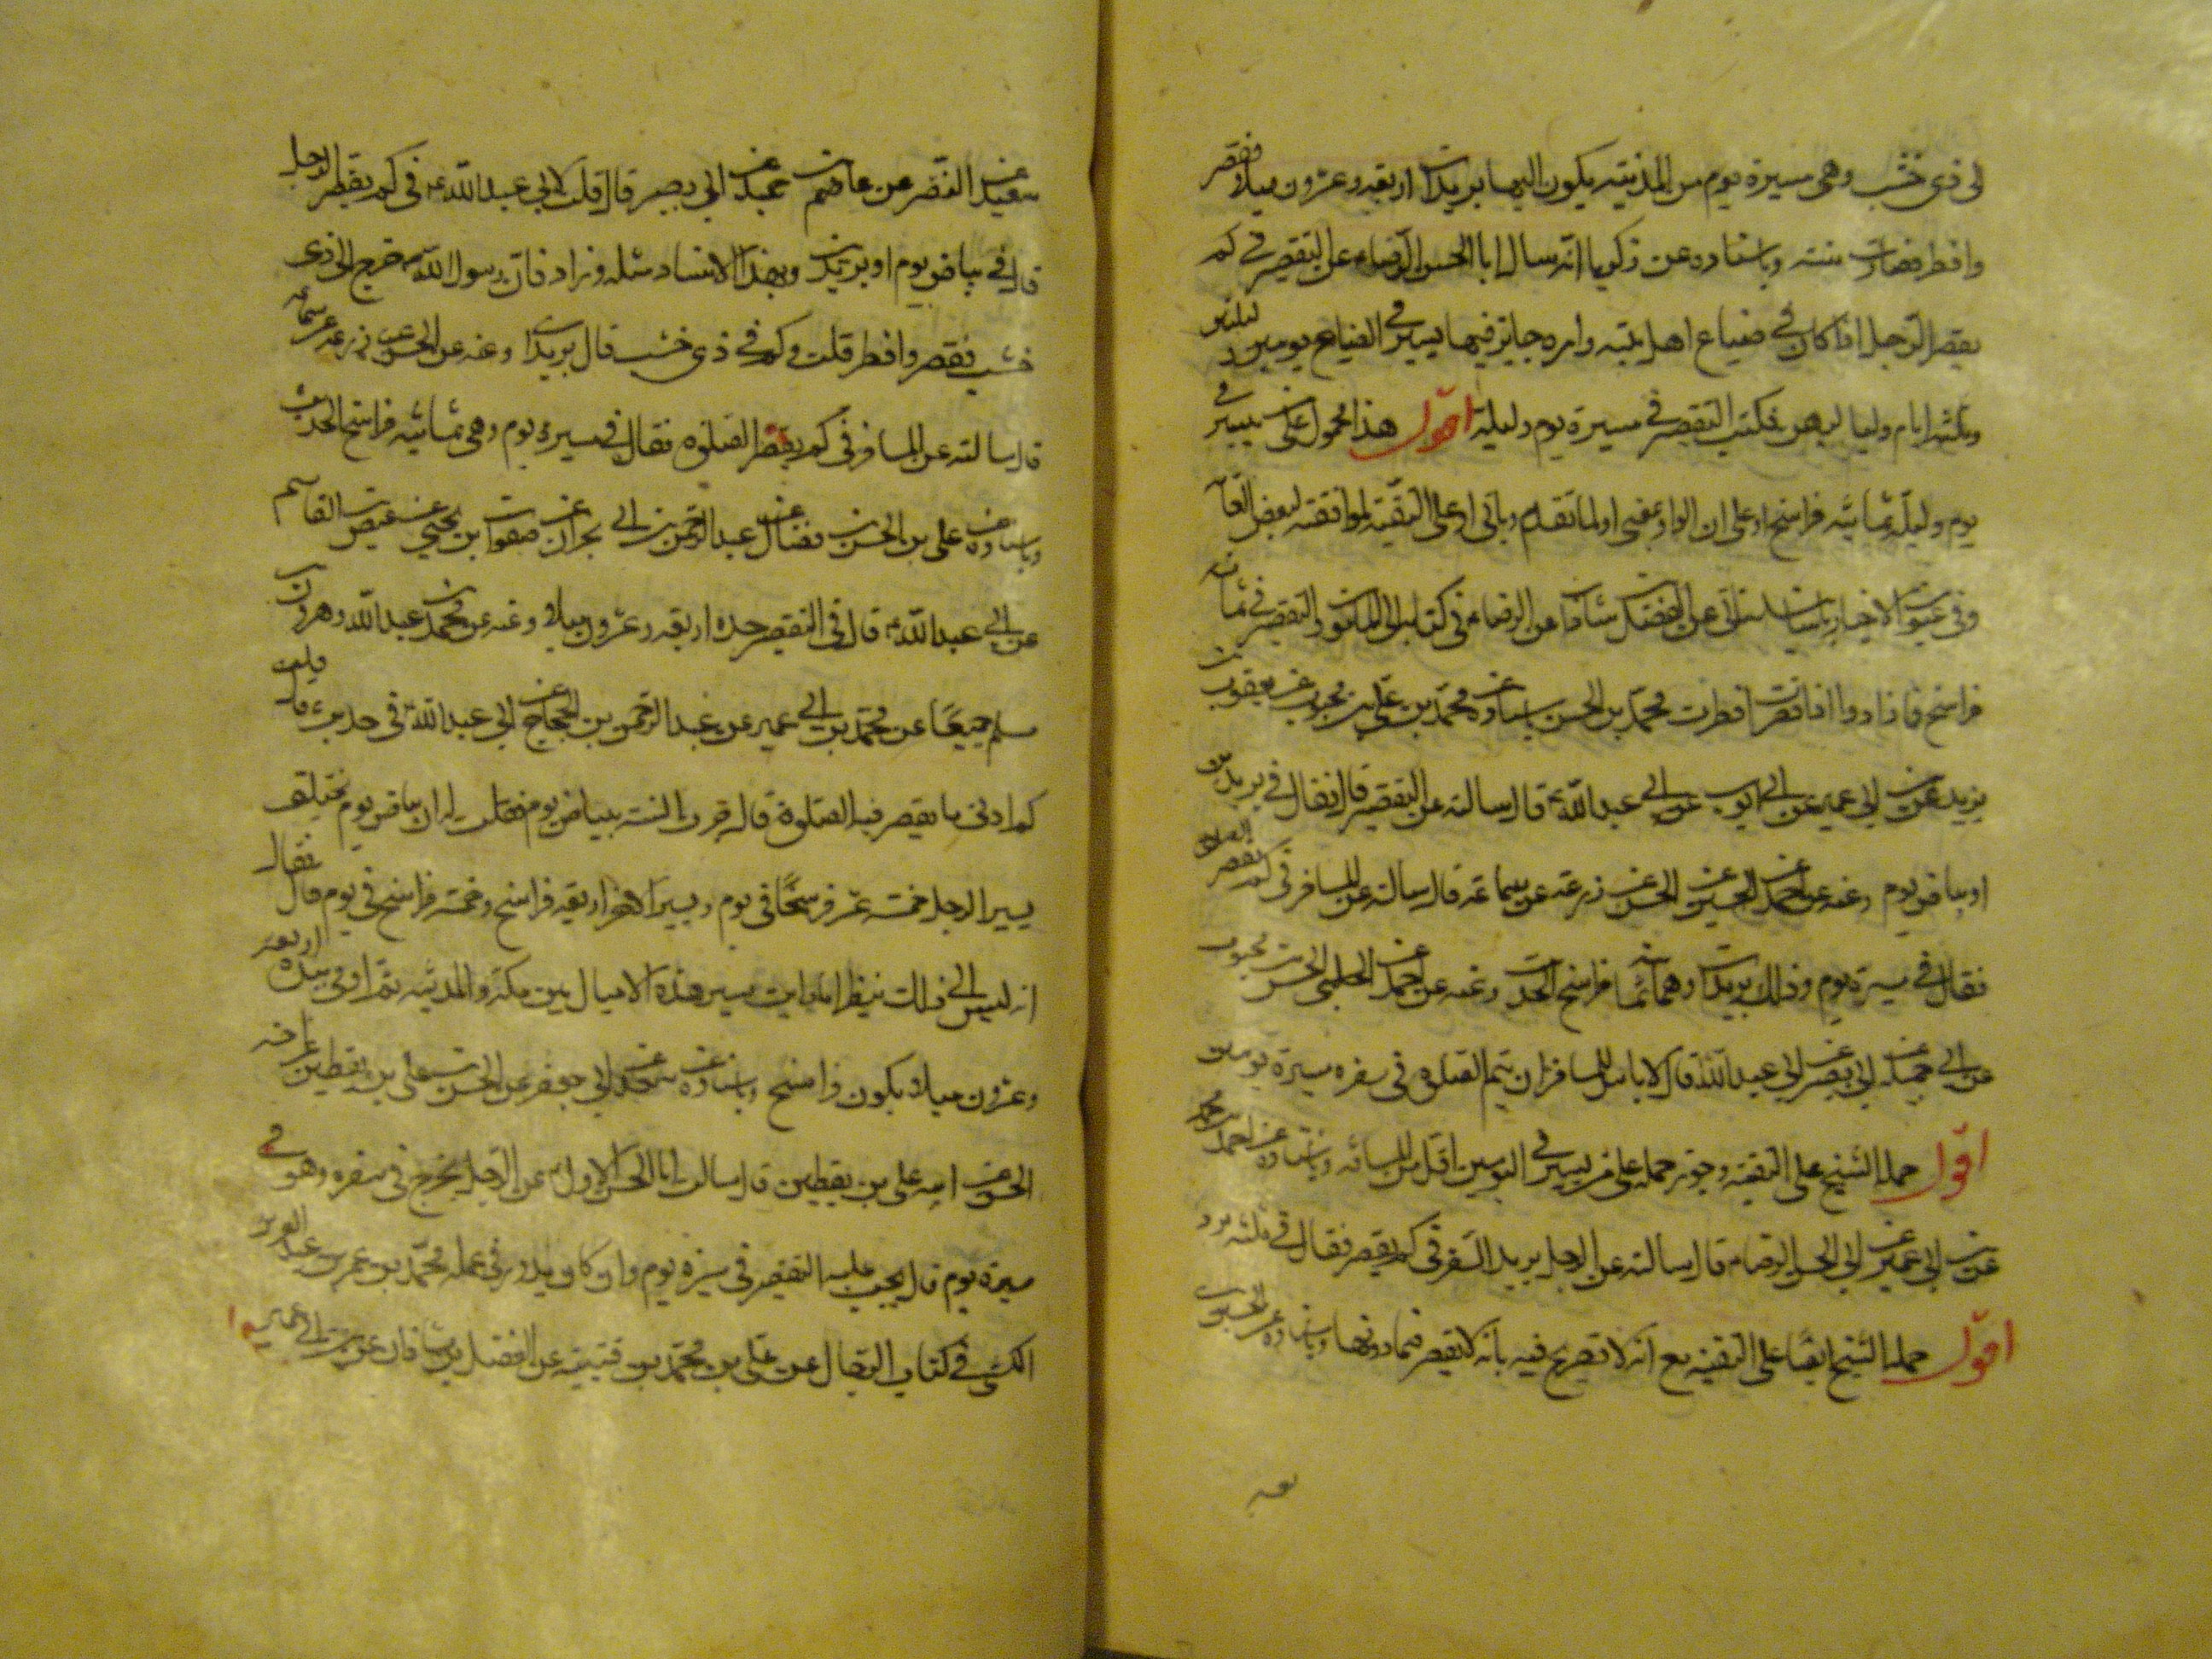 الى ذى خشب وهى مسيرة يوم من المدينة يكون اليها بريدان اربعة وعشرون ميلا فقصر
وافطر فصارت سنته وباسناده عن زكريا انه سال ابا الحسن الرضا ع عن التقصير فى كم
يقصر الرجل اذا كان فى ضياع اهل بيته وامره جايز فيها يسير فى الضياع يومين وليلتين
وثلثة ايام ولياليهن فكتب التقصير فى مسيرة يوم وليلة اقول هذا محمول على من يسير فى
يوم وليلة ثمانية فراسخ او على ان الواو بمعنى او لما تقدم وياتى او على التقية لموافقته لبعض العامة
وفى عيون الاخبار باسناد عن الفضل بن شاذان عن الرضا ع فى كتابه الى المامون والتقصير فى ثمانية
فراسخ وما زاد واذا قصرت افطرت محمد بن الحسن باسناده عن محمد بن على بن محبوب عن يعقوب بن
يزيد عن ابن ابى عمير عن ابى ايوب عن ابى عبد الله ع قال سالته عن التقصير قال فقال فى بريدين
او بياض يوم وعنه عن احمد عن الحسين عن الحسن عن زرعة عن سماعة قال سالته عن المسافر فى كم يقصر الصلوة
فقال فى مسيرة يوم وذلك بريدان وهما ثمانية فراسخ الحديث وعنه عن احمد عن الحسن بن محبوب
عن ابى جميلة عن ابى بصير عن ابى عبد الله قال لا باس للمسافر ان يتم الصلوة فى سفره مسيرة يومين
اقول حمله الشيخ على التقية وجوز حمله على من يسير فى اليومين اقل من المسافة وباسناده عن احمد بن محمد
عن ابن ابى عمير عن ابى الحسن الرضا ع قال سالته عن الرجل يريد السفر فى كم يقصر فقال فى ثلثة برد
اقول حمله الشيخ ايضا على التقية مع انه لا تصريح فيه بانه لا يقصر فيما دونها وباسناده عن الحسين بن
سعيد عن النضر عن عاصم بن حميد عن ابى بصير قال قلت لابى عبد الله ع فى كم يقصر الرجل
قال فى بياض يوم او بريدين وبهذا الاسناد مثله وزاد فان رسول الله ص خرج الى ذى
خشب فقصر وافطر قلت وكم فى ذى خشب قال بريدان وعنه عن الحسن عن زرعة عن سماعة
قال سالته عن المسافر فى كم يقصر الصلوة فقال فى مسيرة يوم وهى ثمانية فراسخ الحديث
وباسناده عن على بن الحسن بن فضال عن عبد الرحمن بن ابى نجران عن صفوان بن يحيى عن عيص بن القاسم
عن ابى عبد الله ع قال فى التقصير حده اربعة وعشرون ميلا وعنه عن محمد بن عبد الله وهرون بن
مسلم جميعا عن محمد بن ابى عمير عن عبد الرحمن بن الحجاج عن ابى عبد الله ع فى حديث قال قلت
كم ادنى ما يقصر فيه الصلوة قال جرت السنة ببياض يوم فقلت له ان بياض يوم يختلف
يسير الرجل خمسة عشر فرسخا فى يوم ويسير الاخر اربعة فراسخ وخمسة فراسخ فى يوم قال فقال
انه ليس الى ذلك ينظر اما رايت سير هذه الاميال بين مكة والمدينة ثم اومى بيده اربعة
وعشرون ميلا يكون ثمانية فراسخ وباسناده عن سعد عن ابى جعفر عن الحسن بن على بن يقطين عن اخيه
الحسين عن ابيه على بن يقطين قال سالت ابا الحسن الاول ع عن الرجل يخرج فى سفره وهو فى
مسيرة يوم قال يجب عليه التقصير فى مسيرة يوم وان كان يدور فى عمله محمد بن عمر بن عبد العزيز
الكشى فى كتاب الرجال عن على بن محمد بن قتيبة عن الفضل بن شاذان عن ابن ابى عمير